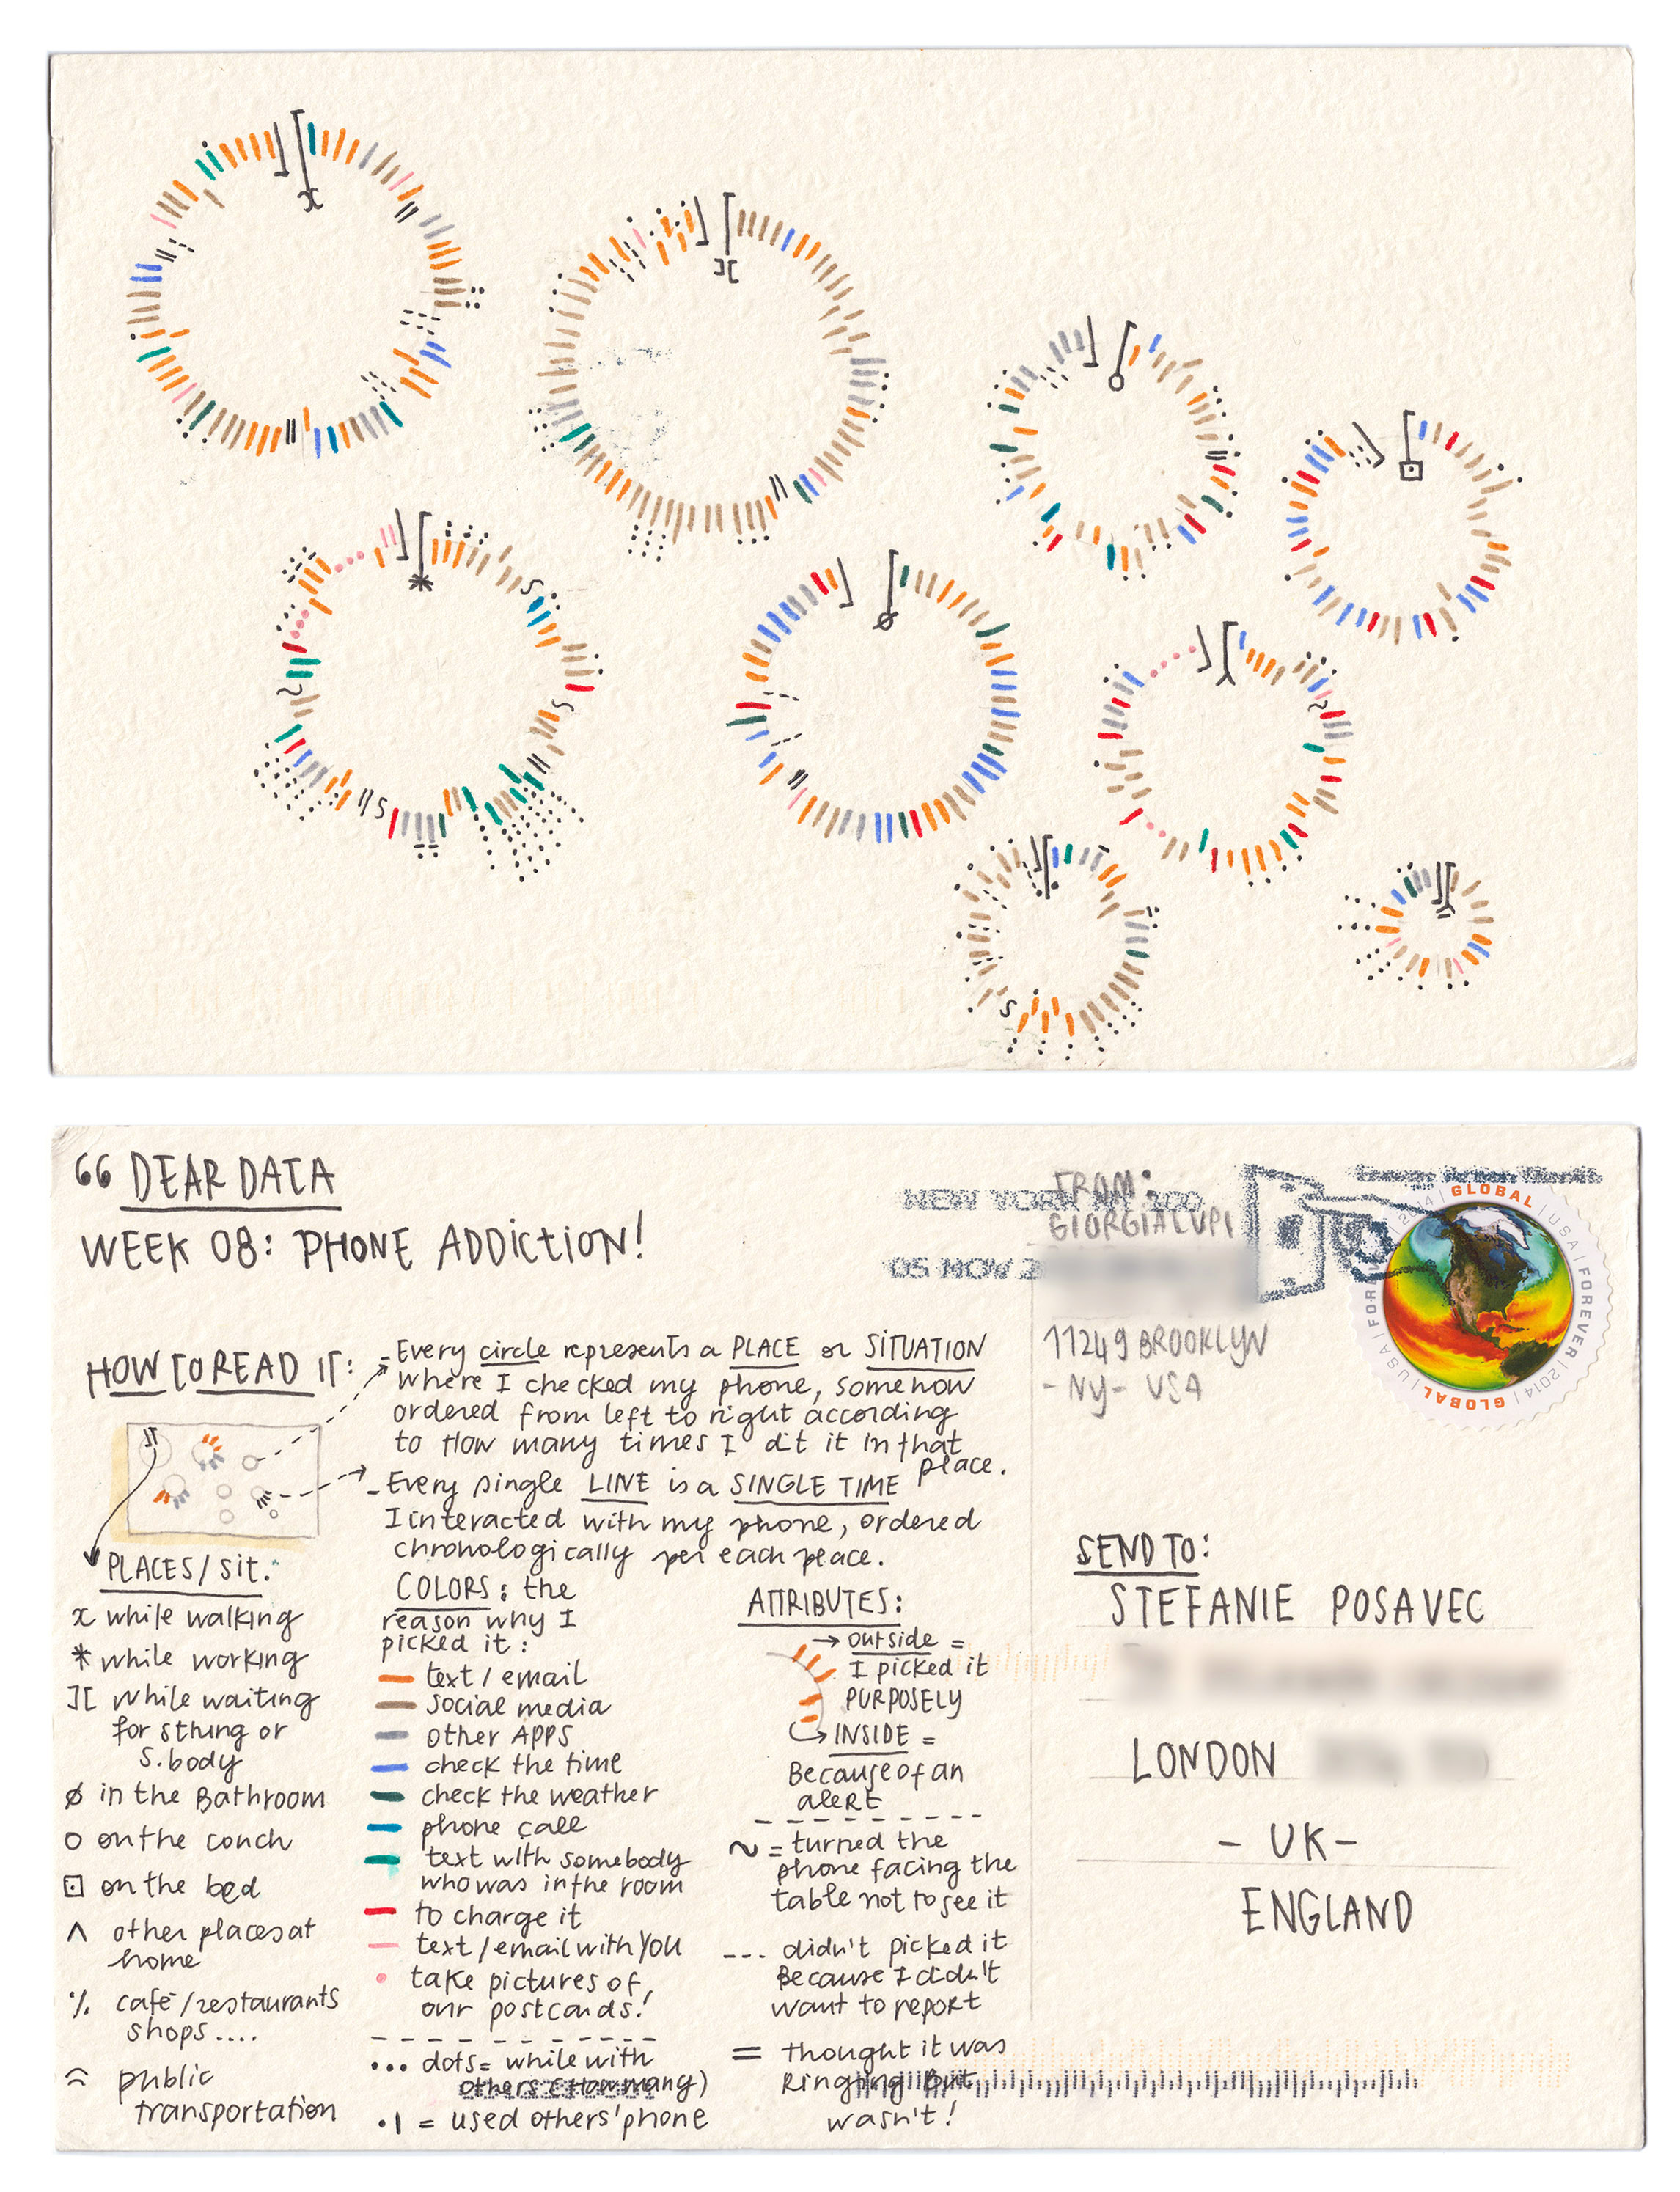 “ DEAR DATA
WEEK 08: PHONE ADDICTION!
HOW TO READ IT:
- Every circle represents a PLACE or SITUATION
where I checked my phone, somehow
ordered from left to right according
to How many times I dit it in that
place.
- Every single LINE is a SINGLE TIME
I interacted with my phone, ordered
chronologically per each place.
PLACES/ sit.
x while walking
* while working
][ while waiting
for sthing or
s.body
ø in the Bathroom
o on the couch
⊡ on the bed
^ other places at
home
·/. café/restaurants
shops....
public
transportation
COLORS: the
reason why I
picked it:
text / email
social media
other APPS
check the time
check the weather
phone call
text with somebody
who was in the room
to charge it
text / email with YOU
take pictures of,
our postcards!
... dots= while with
others (How many)
.| = used others' phone
ATTRIBUTES:
→ outside =
I picked it
PURPOSELY
→ INSIDE =
Because of an
alert
~ = turned the
phone facing the
table not to see it
--- didn't picked it
Because I didn't
want to report
= thought it was
Ringing But
wasn't!
FROM:
GIORGIA LUPI
11249 BROOKLYN
- NY - USA
NEW YORK NY 100
05 NOV 2
GLOBAL | USA | FOREVER | 2014 | GLOBAL | USA | FOREVER | 2014
SEND TO:
STEFANIE POSAVEC
LONDON
- UK -
ENGLAND